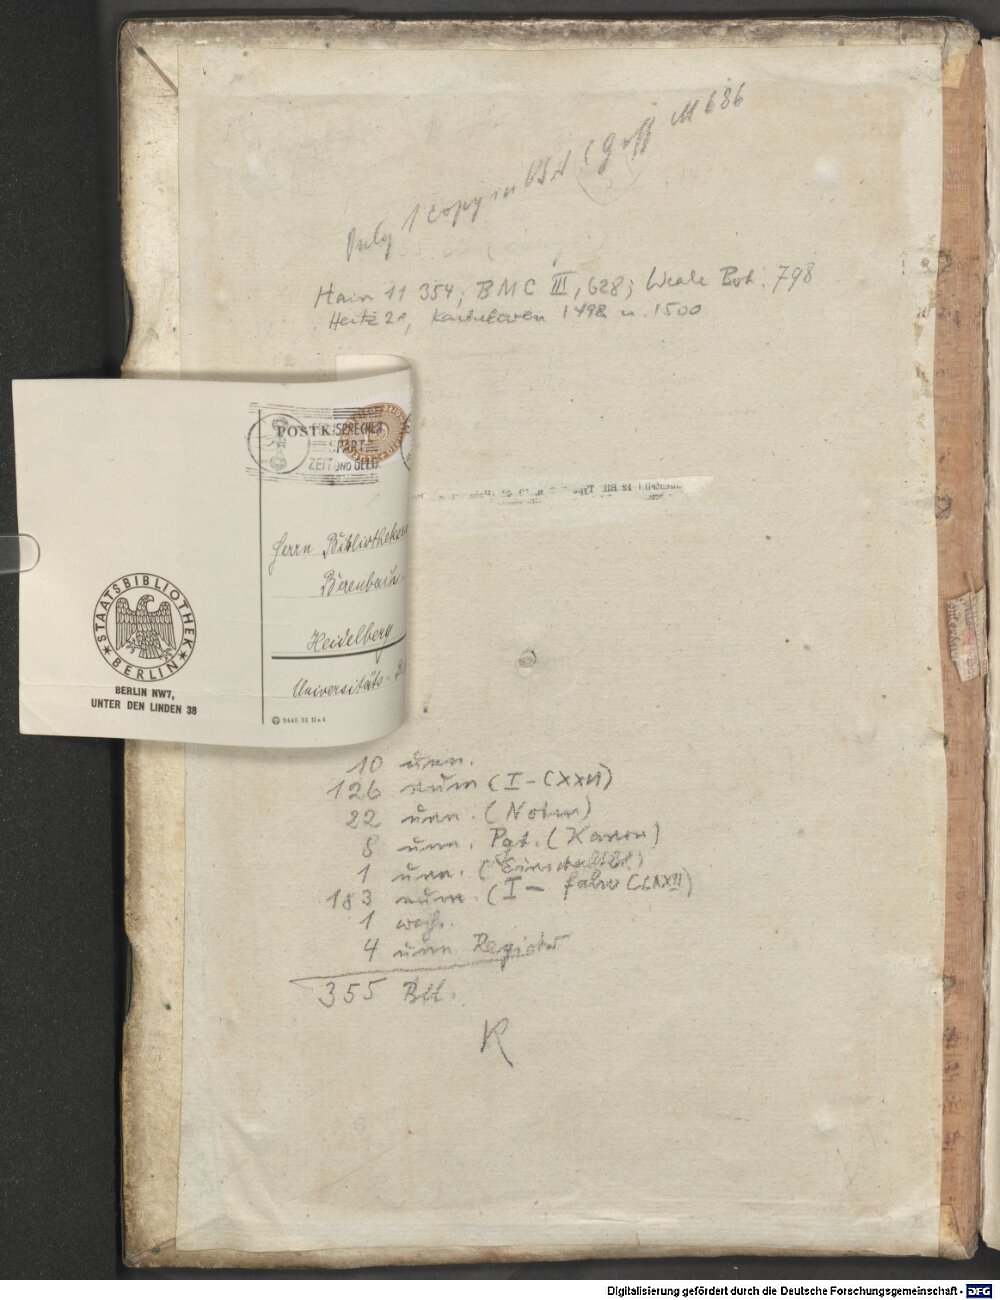 Only 1 copy in USA (Goff M 686
Hain 11 354; BMC III, 628; Weale Boh. 798
Heitz 21, 1498 u. 1500
POSTK
FERNSPRECHER
SPART
ZEIT UND GELD
Herrn
Heidelberg
Universitäts-
STAATSBIBLIOTHEK
BERLIN
BERLIN NW7,
UNTER DEN LINDEN 38
10 unn.
126 num (I - CXXVI)
22 unn. (Noten)
8 unn. Pgt. (Kanon)
1 unn. (Einschaltbl.)
183 num. (I - )
1 weiß.
4 unn Register
355 Bll.
K
Digitalisierung gefördert durch die Deutsche Forschungsgemeinschaft - DFG